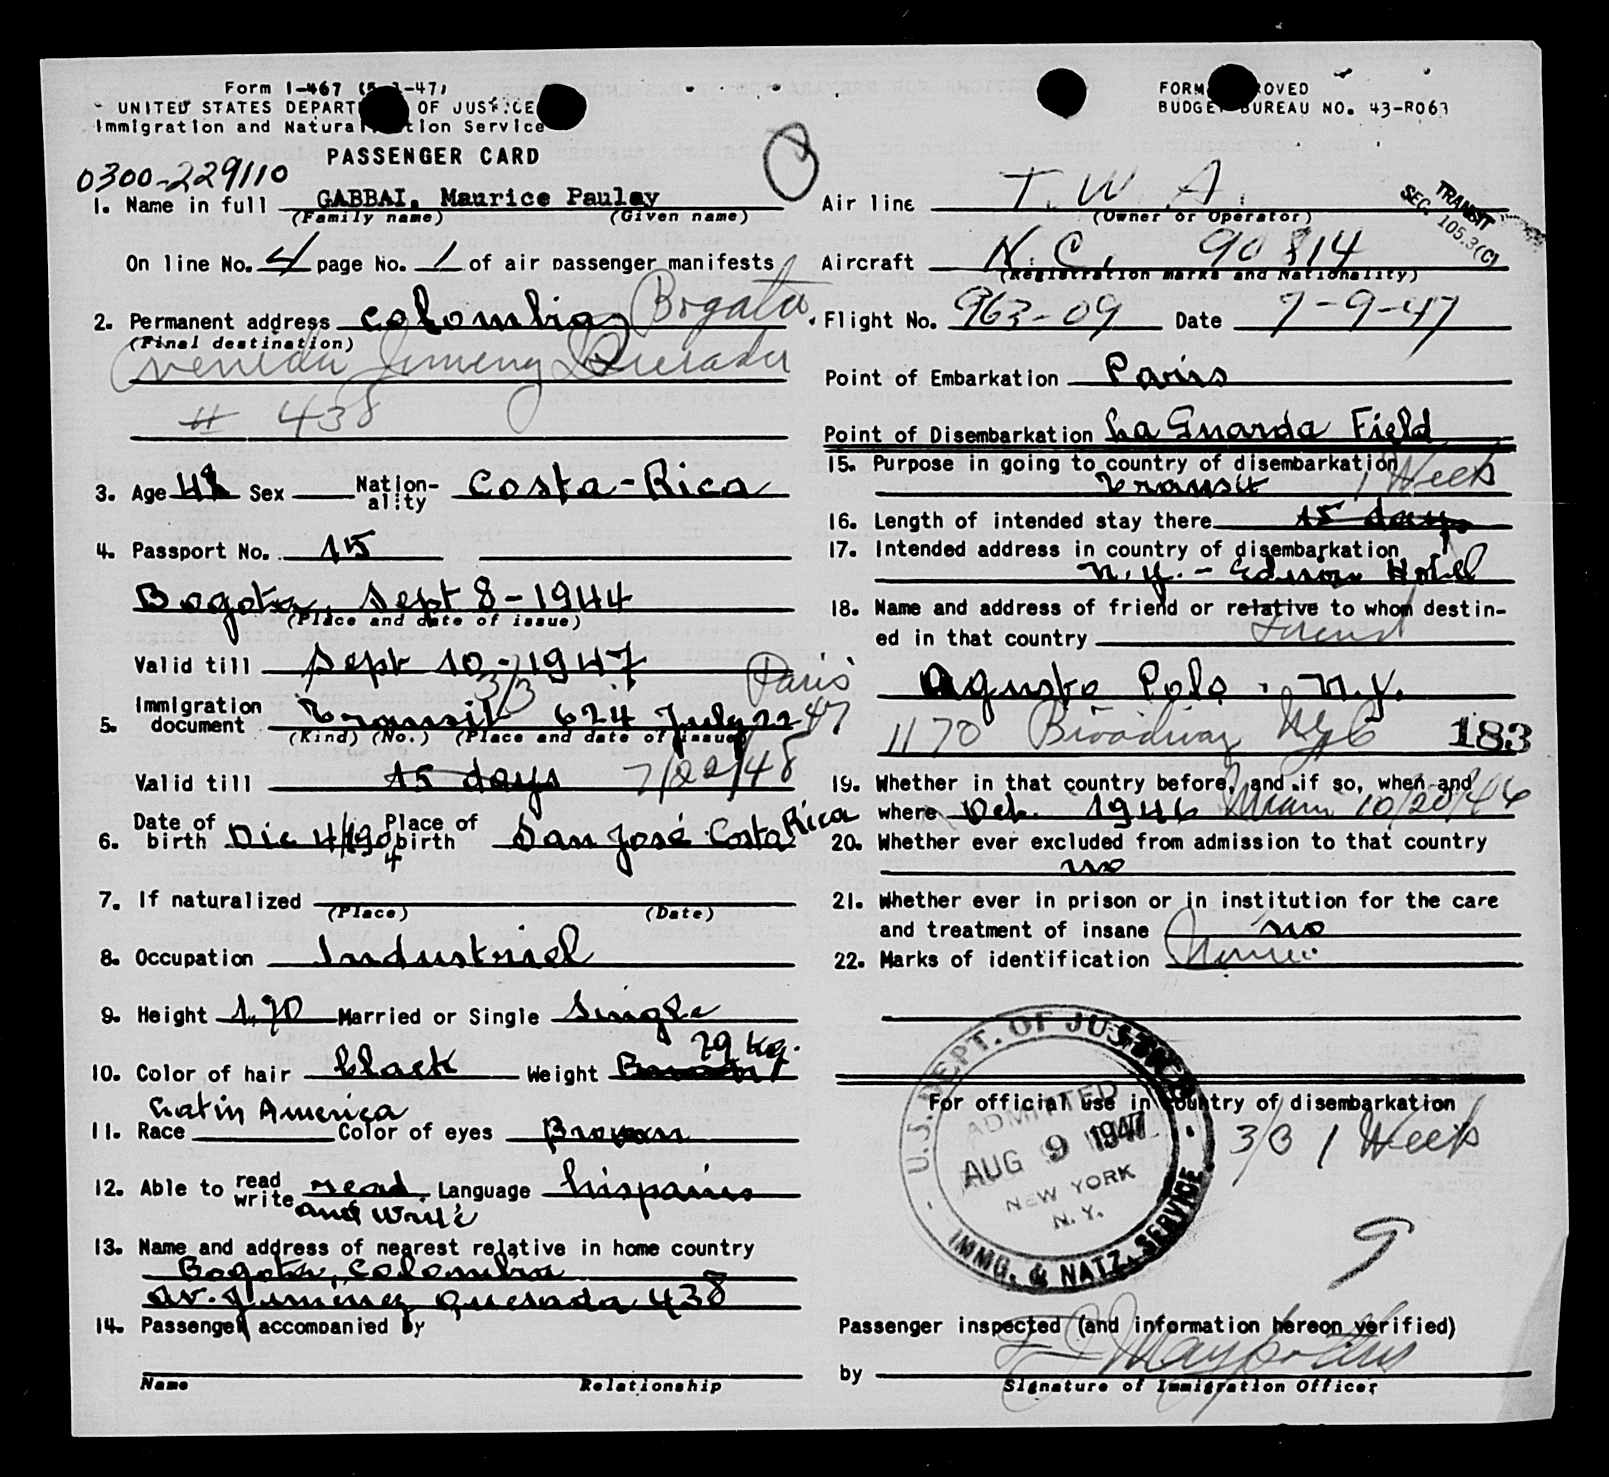 Form I-467 (5-1-47)
UNITED STATES DEPART OF JUSTICE
Immigration and Natura tion Service
PASSENGER CARD
0300-229110
8
1. Name in full GABBAI, Maurice Pauley
(Family name) (Given name)
On line No. 4 page No. 1 of air passenger manifests
2. Permanent address Colombia, Bogota
(Final destination)
Jimenez Quesada
# 438
3. Age Sex Nation-ality Costa-Rica
4. Passport No. 15
Bogota, Sept 8-1944
(Place and date of issue)
Valid till Sept 10-1947
3/3 Paris
5. Immigration document Transit 624 July 22 47
(Kind) (No.) (Place and date of issue)
Valid till 15 days 7/22/48
6. Date of birth Dic 4/1904 Place of birth San José Costa Rica
7. If naturalized
(Place) (Date)
8. Occupation Industriel
9. Height 1.70 Married or Single Single
79 Kg.
10. Color of hair black Weight
Latin America
11. Race Color of eyes Brown
12. Able to read write read Language hispanis
and write
13. Name and address of nearest relative in home country
Bogota, Colombia
Av. Jiminez Quesada 438
14. Passenger accompanied by
Name Relationship
FORM OVED
BUDGET BUREAU NO. 43-R063
Air line T.W.A.
(Owner or Operator)
TRANSIT
SEC. 105.3(C)
Aircraft N.C. 90814
(Registration marks and Nationality)
Flight No. 963-09 Date 7-9-47
Point of Embarkation Paris
Point of Disembarkation La Guarda Field
15. Purpose in going to country of disembarkation
transit 1 Week
16. Length of intended stay there 15 days
17. Intended address in country of disembarkation
N.Y. - Edison Hotel
18. Name and address of friend or relative to whom destin-
ed in that country Friend
Agusto Polo. N.Y.
1170 Broadway NYC 183
19. Whether in that country before, and if so, when and
where Oct. 1946 Miami 10/20/46
20. Whether ever excluded from admission to that country
no
21. Whether ever in prison or in institution for the care
and treatment of insane no
22. Marks of identification None
For official use in country of disembarkation
U.S. DEPT. OF JUSTICE
ADMITTED
AUG 9 1947
NEW YORK
N.Y.
IMMG. & NATZ. SERVICE
3/3 1 Week
9
Passenger inspected (and information hereon verified)
by
Signature of Immigration Officer